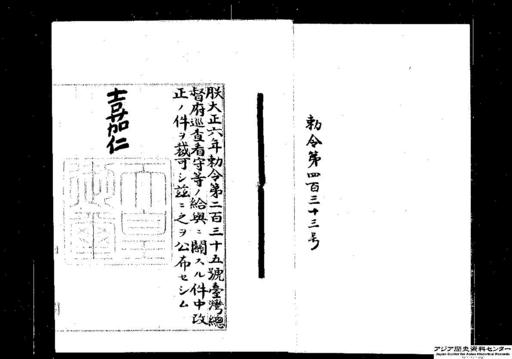 勅令第四百三十三号
朕大正六年勅令第二百三十五號臺灣總
督府巡査看守等ノ給與ニ關スル件中改
正ノ件ヲ裁可シ茲ニ之ヲ公布セシム
嘉仁
天皇
御璽
アジア歴史資料センター
Japan Center for Asian Historical Records